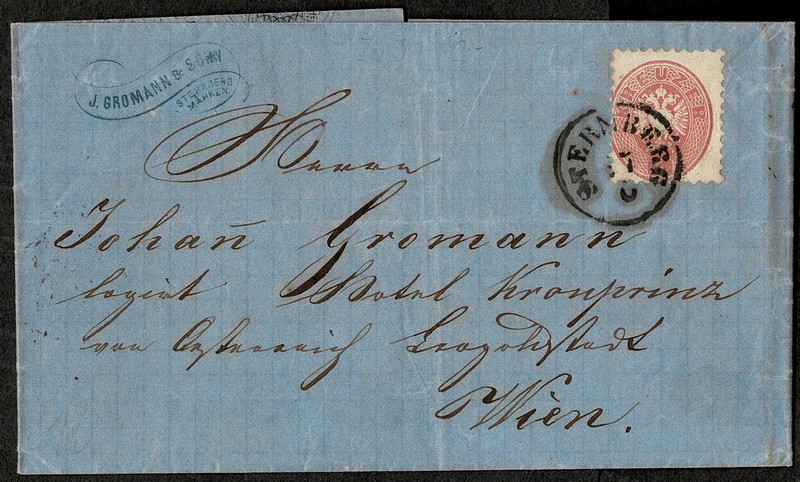 J. GROMANN & SOHN
STERNBERG
MÄHREN
STERNBERG
Herrn
Johan̄ Gromann
logirt Hotel Kronprinz
von Oesterreich Leopoldstadt
Wien.